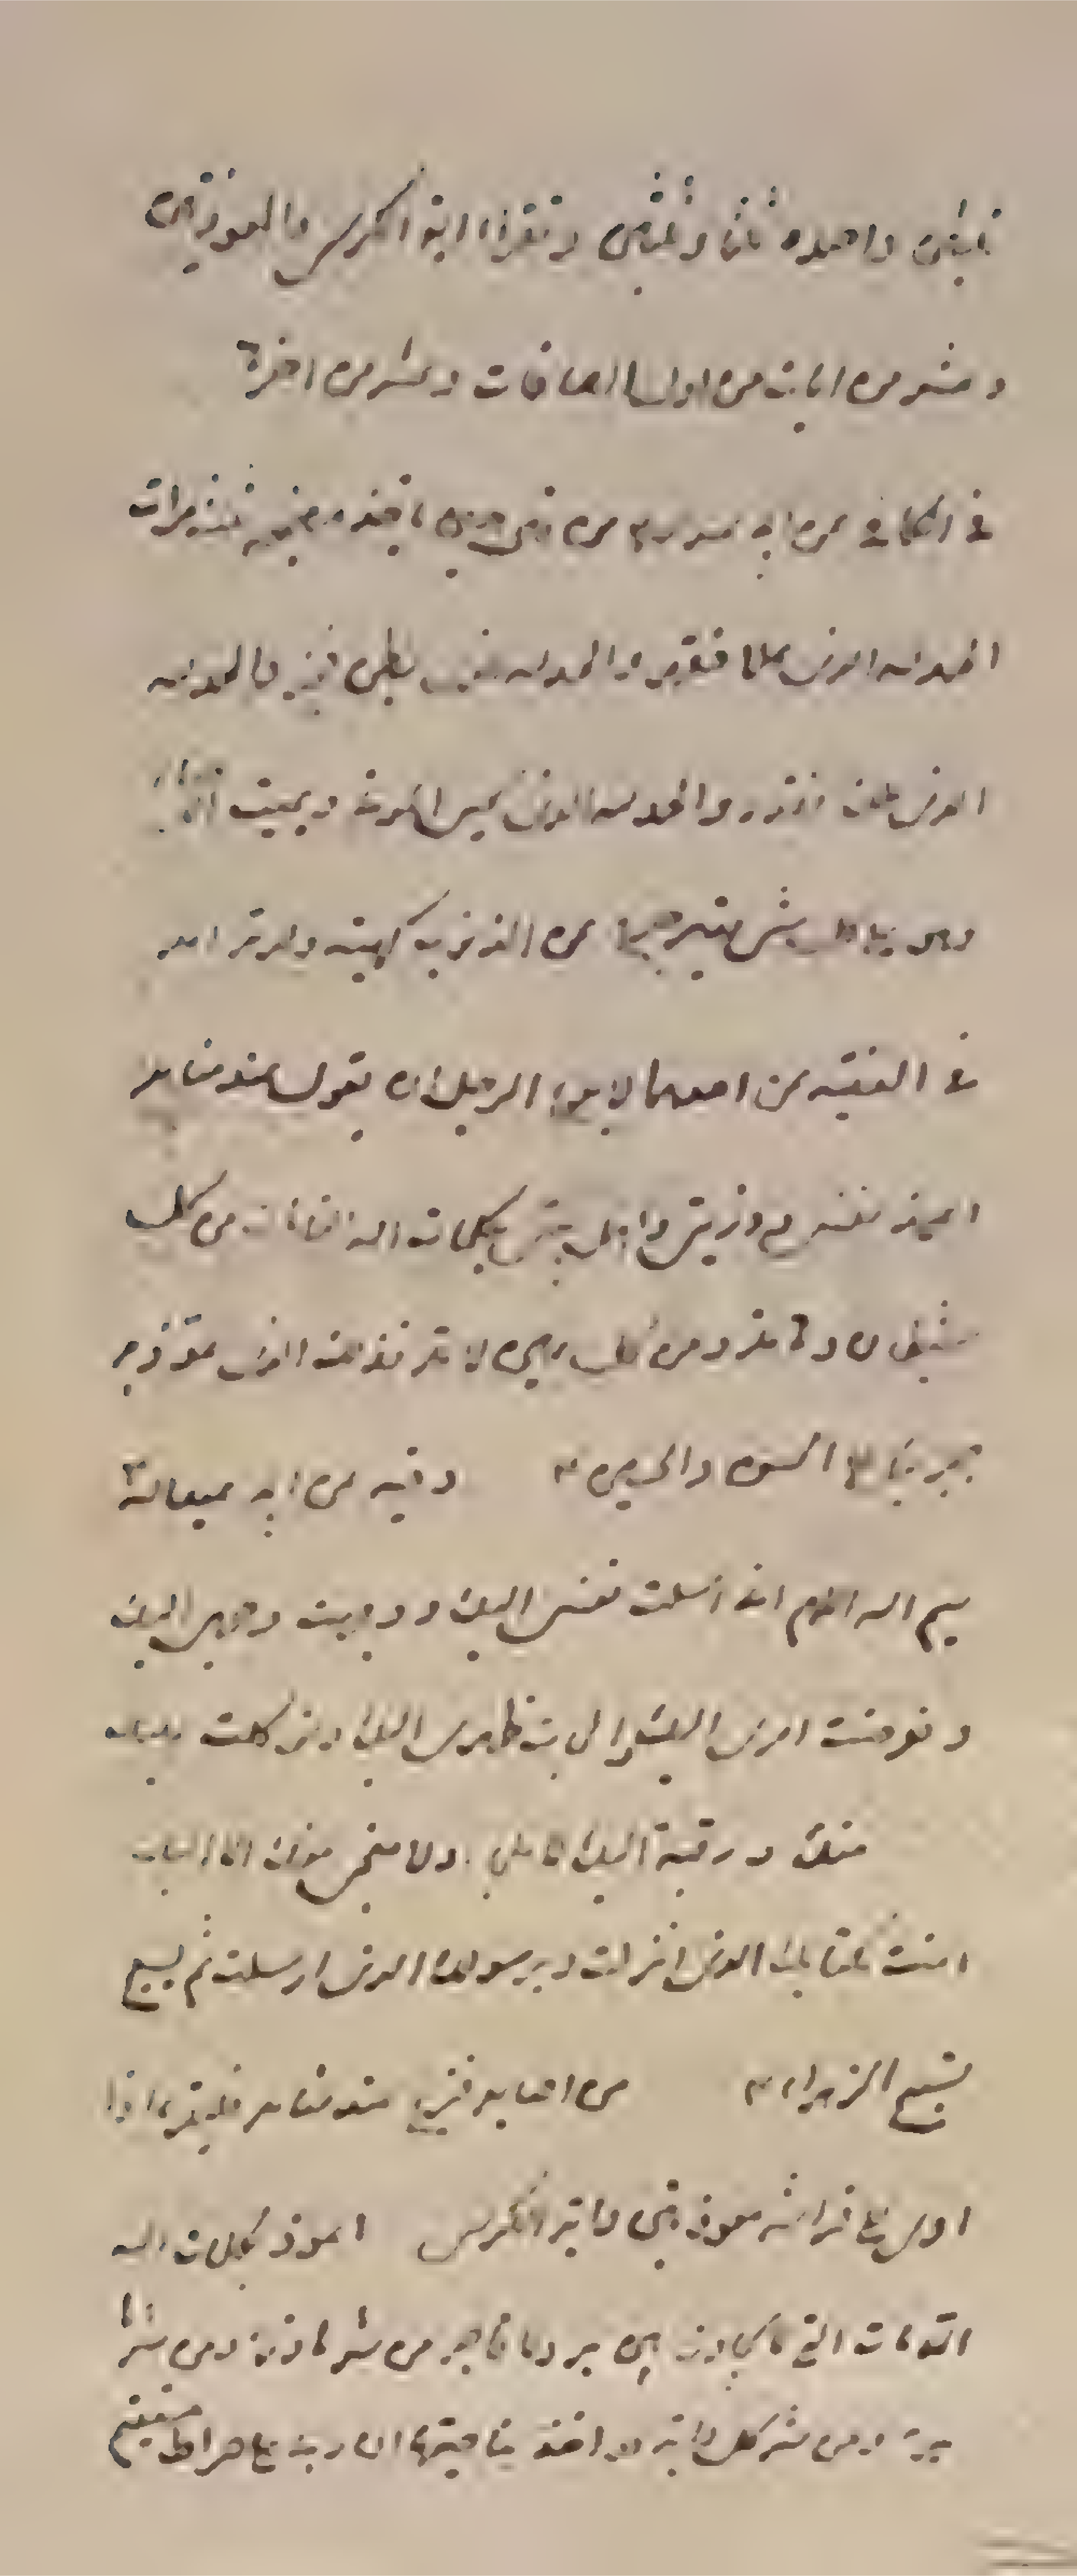 ثلثين واحمده ثلثا وثلثين وتقرأ اية الكرسي والمعوذتين
وعشر من ايات من اول الصافات وعشر من اخرها
في الكافي عن ابي عبد الله من قال حين ياخذ مضجعه ثلث مرات
الحمد لله الذي علا فقهر والحمد لله الذي بطن فخبر والحمد لله
الذي ملك فقدر والحمد لله الذي يحيي الموتى ويميت الاحياء
وهو على كل شيء قدير خرج من الذنوب كهيئة يوم ولدته امه
في الفقيه عن احدهما لا يدع الرجل ان يقول عند منامه
اعيذ نفسي وذريتي واهل بيتي بكلمات الله التامات من كل
شيطان وهامة ومن كل عين لامة فذلك الذي عوذ به
جبرئيل الحسن والحسين وفيه عن ابي عبد الله
بسم الله اللهم اني اسلمت نفسي اليك ووجهت وجهي اليك
وفوضت امري اليك والجات ظهري اليك وتوكلت عليك
منك ورغبة اليك لا ملجا ولا منجى منك الا اليك
امنت بكتابك الذي انزلت وبرسولك الذي ارسلت ثم يسبح
تسبيح الزهراء من اصابه فزع عند منامه فليقرا اذا
اوى الى فراشه المعوذتين واية الكرسي اعوذ بكلمات الله
التامات التي لا يجاوزهن بر ولا فاجر من شر ما ذرا ومن شر ما
برا ومن شر كل دابة هو اخذ بناصيتها ان ربي على صراط مستقيم